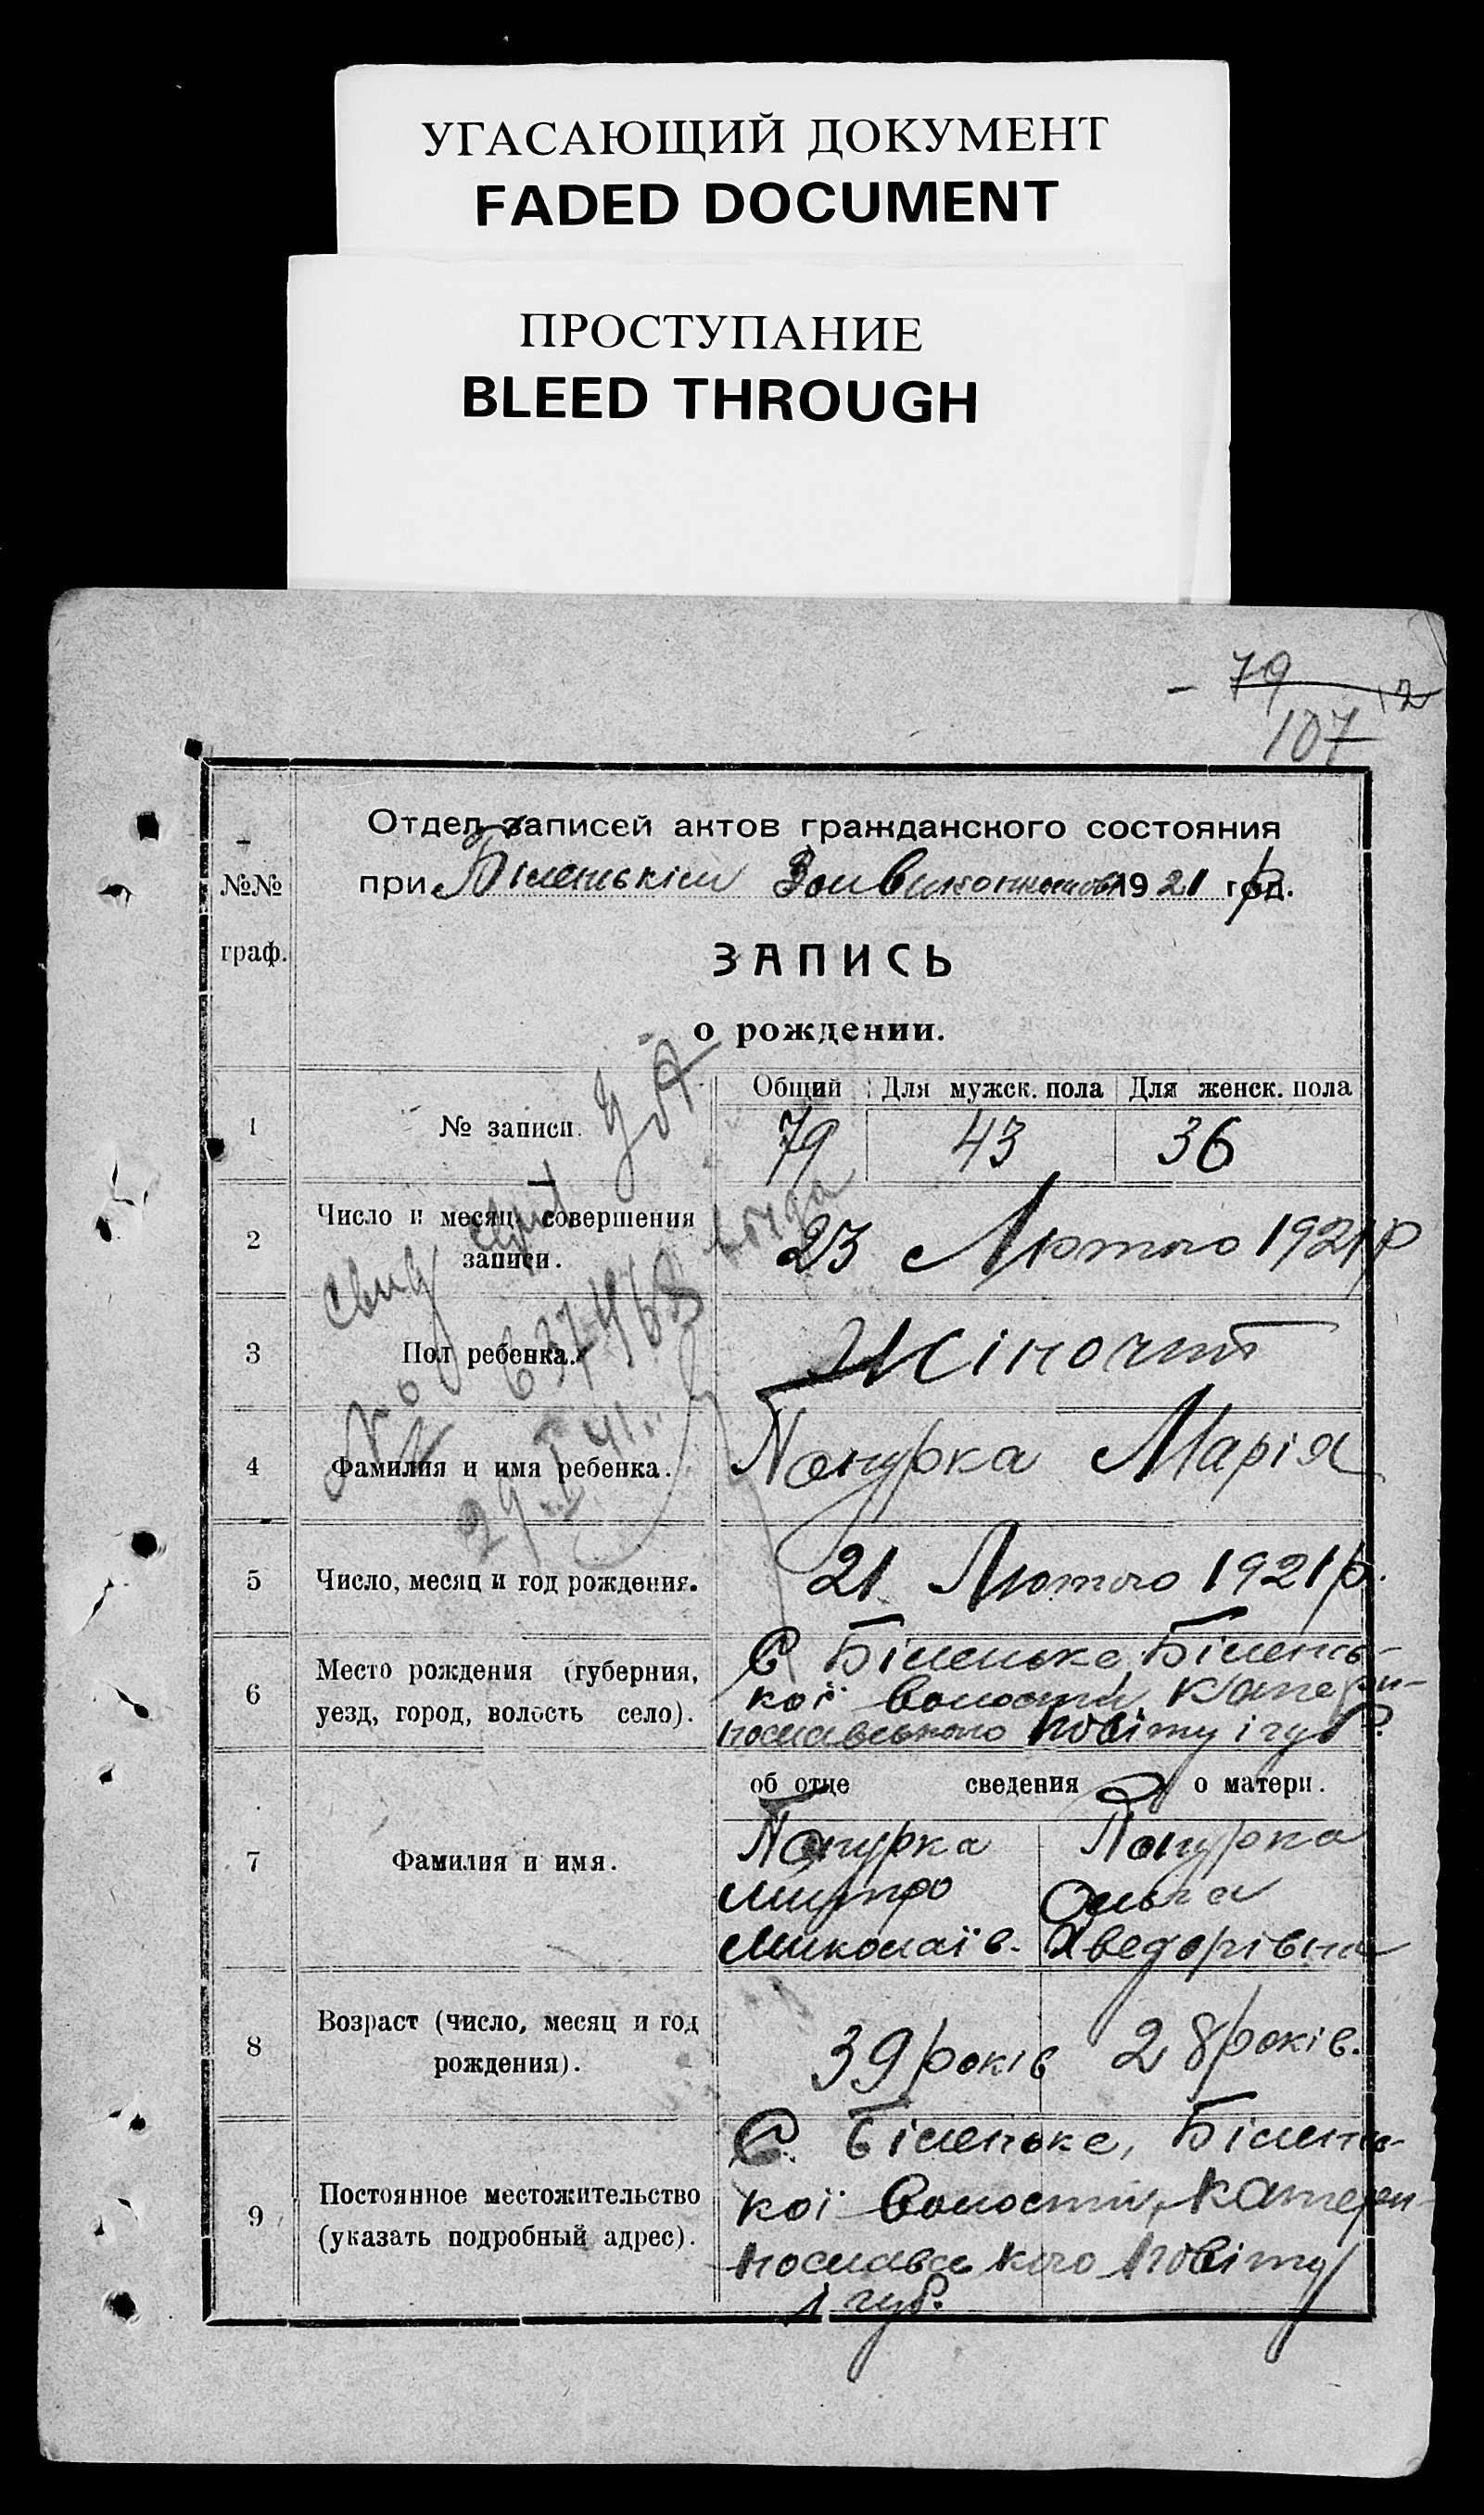 УГАСАЮЩИЙ ДОКУМЕНТ
FADED DOCUMENT
ПРОСТУПАНИЕ
BLEED THROUGH
– 79 12
107
Отдел записей актов гражданского состояния
при Біленькім 1921 год. р
№№
граф.
ЗАПИСЬ
о рождении.
Общий Для мужск. пола Для женск. пола
1 № записи. 79 43 36
2 Число и месяц совершения
записи.
23 Лютого 1921 р
3 Пол ребенка. Жіночий
4 Фамилия и имя ребенка. Понурка Марія
5 Число, месяц и год рождения. 21 Лютого 1921 р.
6 Место рождения (губерния,
уезд, город, волость село).
С Біленьке, Білень-
кої волости, Катери-
нославського повіту і губ.
об отце сведения о матери.
7 Фамилия и имя.
Понурка Понурка
Митро Ольга
Миколаїв. Хведорівна
8 Возраст (число, месяц и год
рождения).
39 років 28 років.
9 Постоянное местожительство
(указать подробный адрес).
С. Біленьке, Білень-
кої волости, Катери-
нославського повіту
і губ.
Свид
№ 637468
29.I 41.